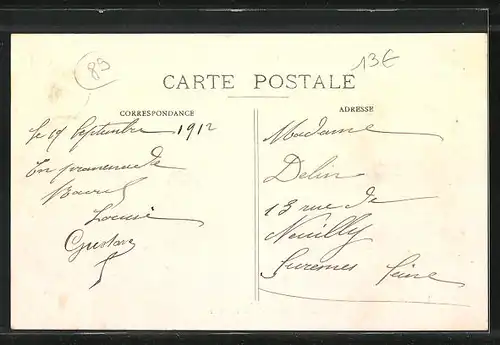 89
13€
CARTE POSTALE
CORRESPONDANCE
ADRESSE
Le 19 Septembre 1912
En promenade
Louise
Gustave
Madame
Delin
13 rue de
Neuilly
Suresnes Seine